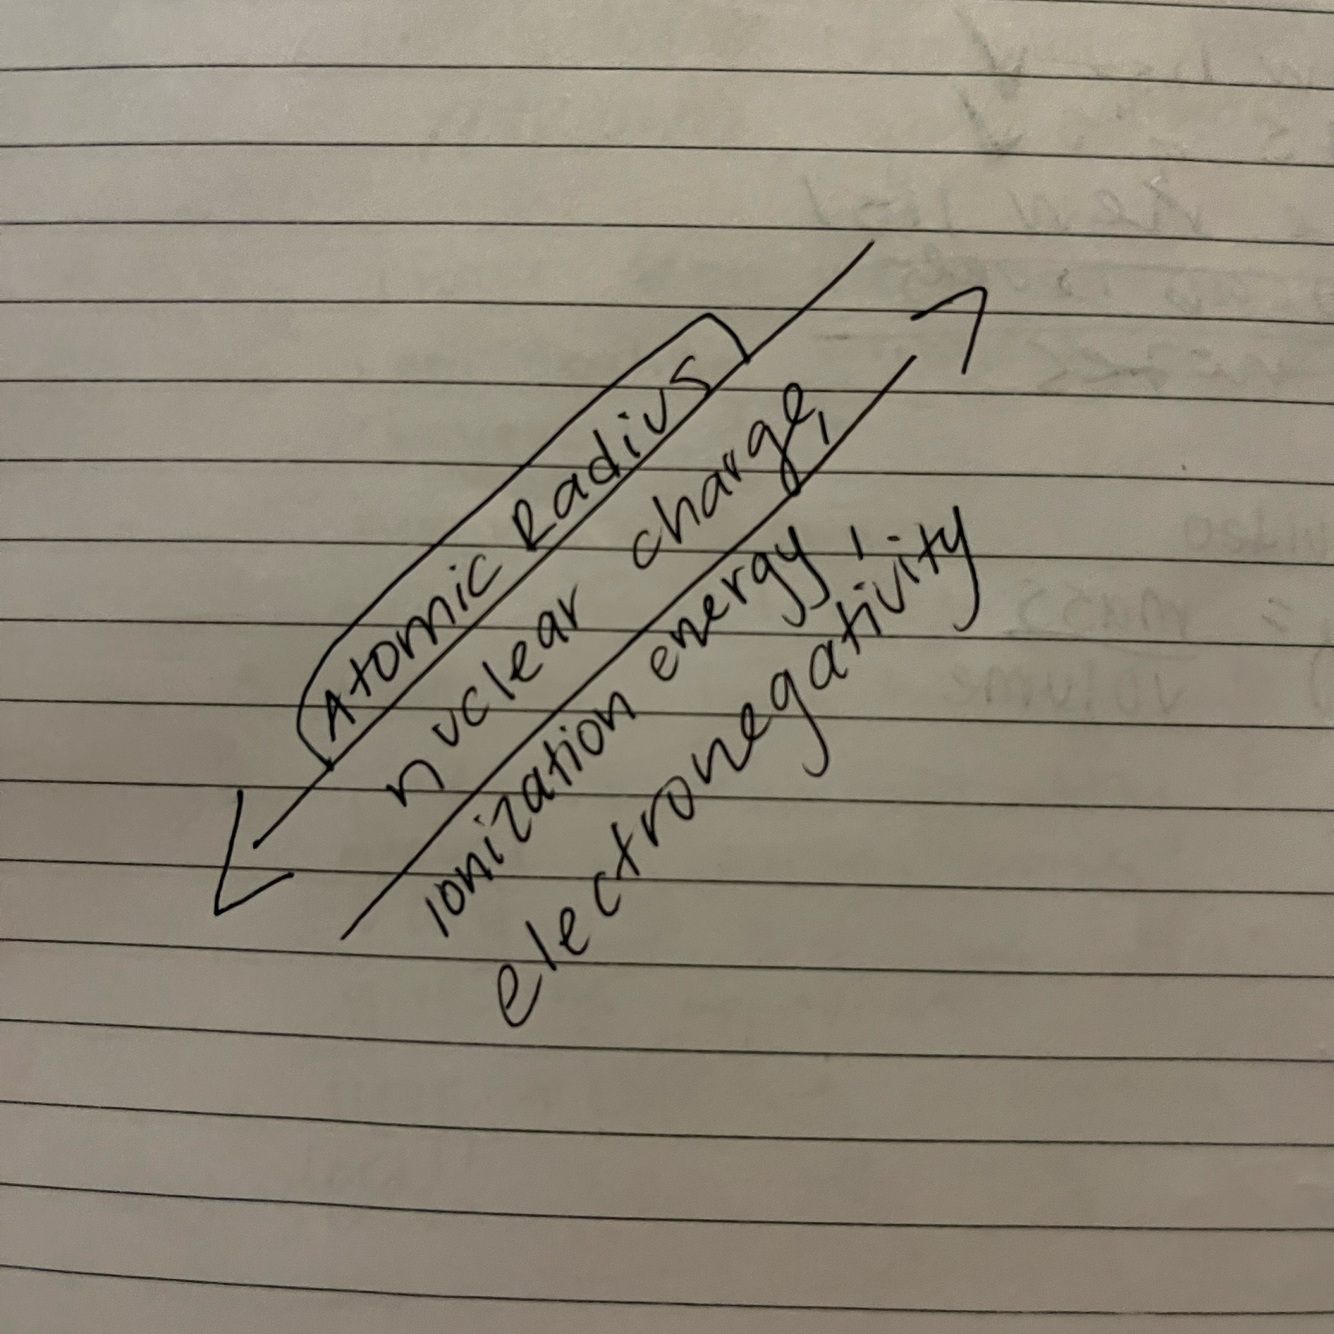 Atomic Radius
nuclear charge,
ionization energy,
electronegativity
mass
volume